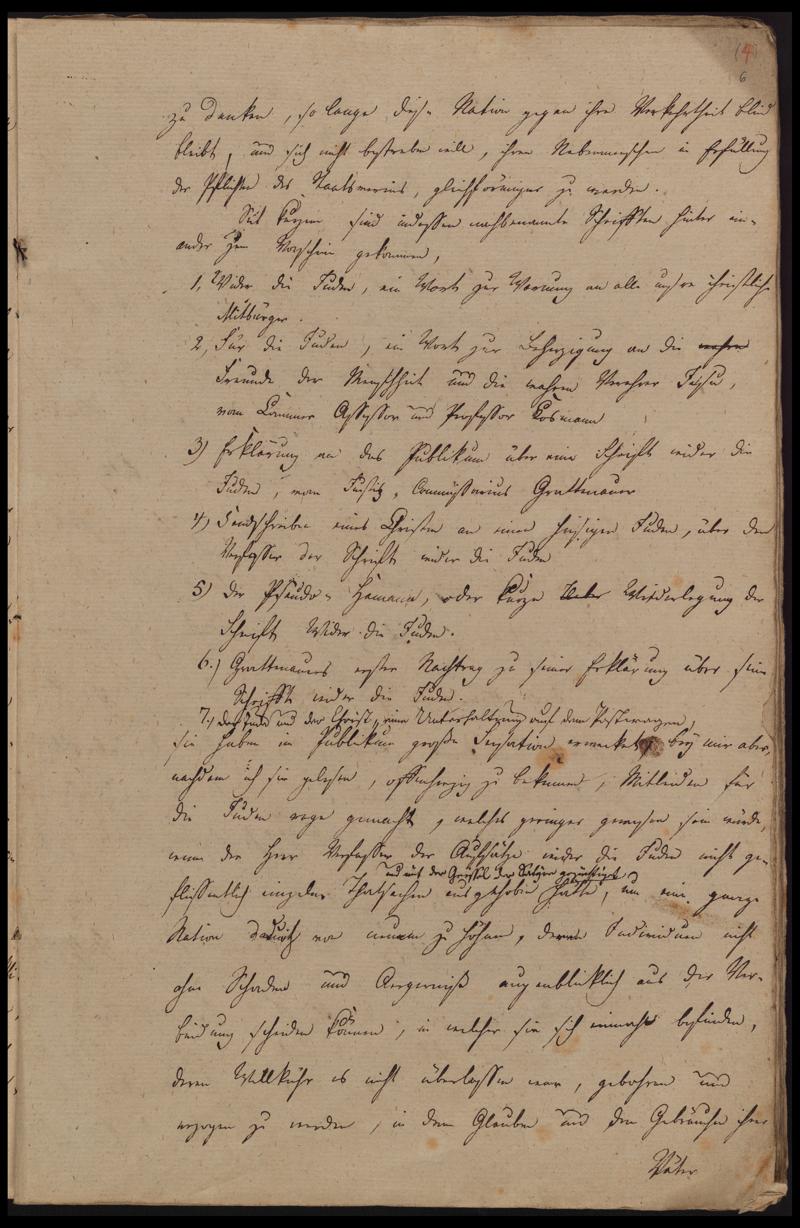 (4)
6
zu danken, so lange diese Nation gegen ihre Verkehrtheit blind
bleibt, und sich nicht bestreben will, ihren Nebenmenschen in Erfüllung
der Pflichten des Staatsvereins, gleichförmiger zu werden.
Seit kurzem sind indessen nachbenannte Schriften hinter ein-
ander zum Vorschein gekommen,
1, Wider die Juden, ein Wort zur Warnung an alle unsre christliche
Mitbürger.
2, Für die Juden, ein Wort zur Beherzigung an die wahren
Freunde der Menschheit und die wahren Verehrer Jesu,
vom Cammer Assessor und Professor Kosmann
3) Erklärung an das Publikum über eine Schrift wider die
Juden, vom Justiz-Commissarius Grattenauer
4) Sendschreiben eines Christen an einen hiesigen Juden, über den
Verfasser der Schrift wider die Juden
5) Der Pseudo-Hamann, oder kurze Ueber Widerlegung der
Schrift Wider die Juden.
6.) Grattenauers erster Nachtrag zu seiner Erklärung über seine
Schrift wider die Juden.
7.) der Jude und der Christ, eine Unterhaltung auf dem Postwagen,
sie haben im Publikum große Sensation erwecket, bey mir aber,
nachdem ich sie gelesen, offenherzig zu bekennen, Mitleiden für
die Juden rege gemacht, welches geringer gewesen sein würde,
wenn der Herr Verfasser der Aufsätze wider die Juden nicht ge-
und mit der Geissel der Satyre gezüchtigt
flissentlich einzelne Thatsachen ausgehoben hätte, um eine ganze
Nation von neuem zu höhnen, deren Individuen nicht
ohne Schaden und Aergerniß augenblicklich aus der Ver-
bindung scheiden können, in welcher sie sich einmahl befinden,
deren Willkühr es nicht überlassen war, gebohren und
erzogen zu werden, in dem Glauben und den Gebräuchen ihrer
Väter